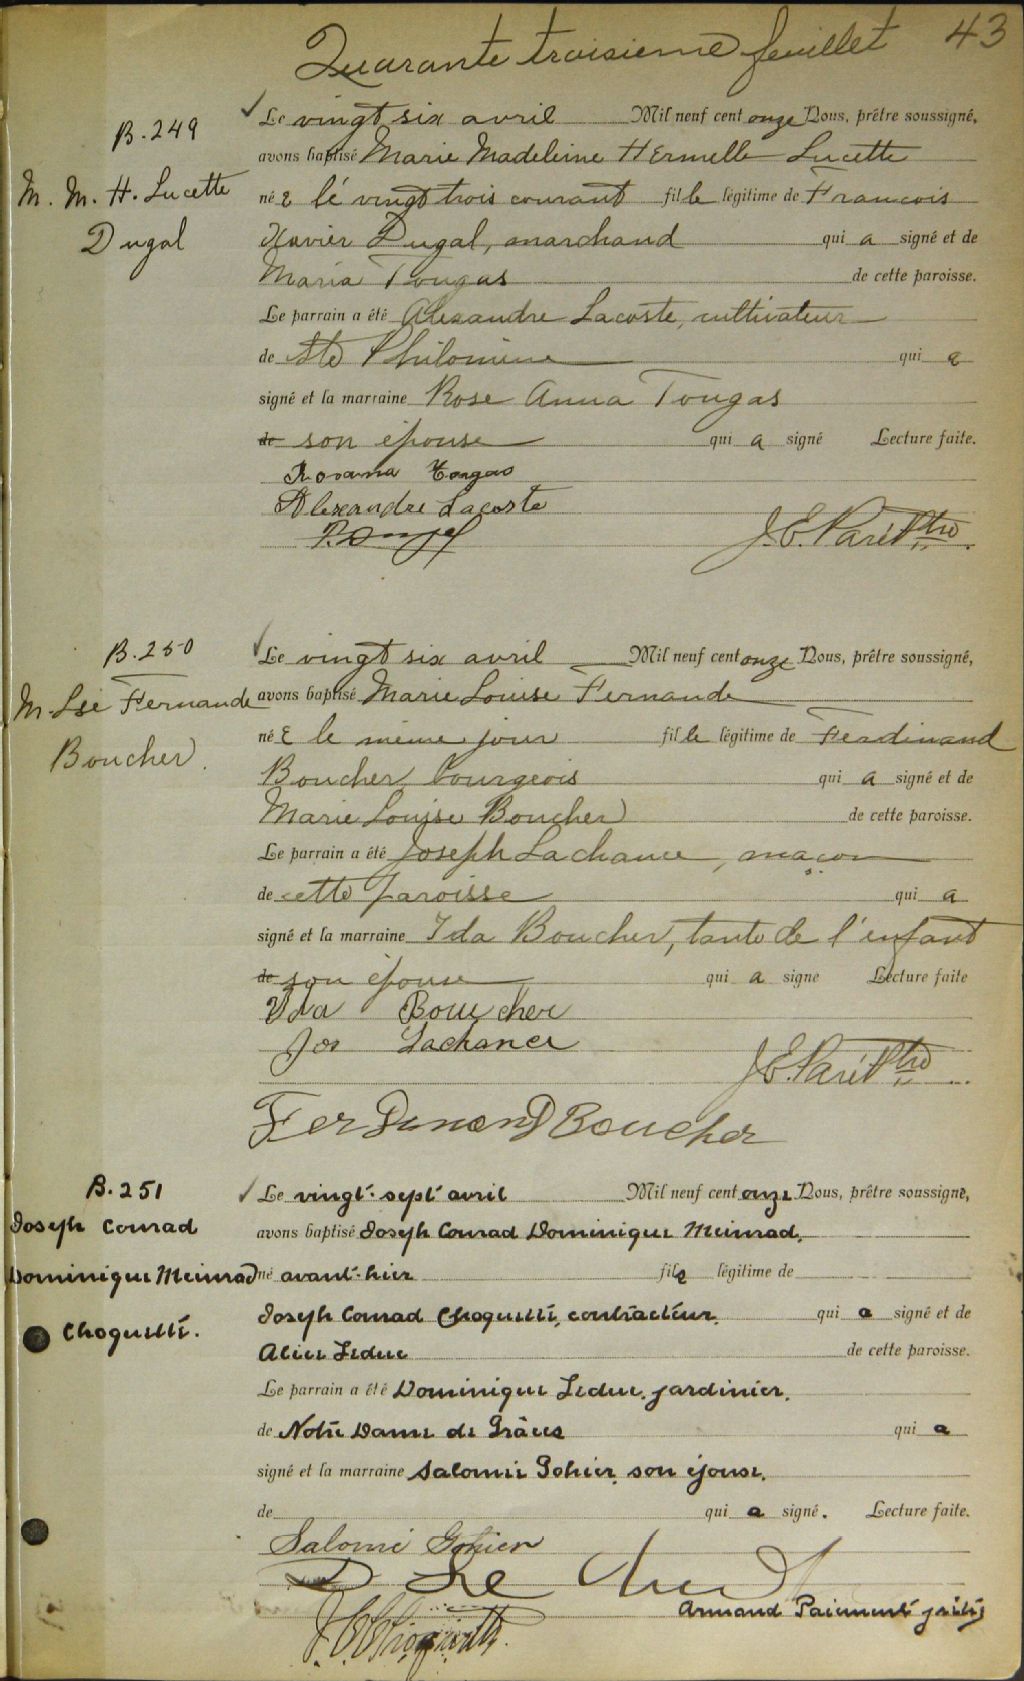 Quarante troisieme feuillet 43
B.249
M. M. H. Lucette
Dugal
Le vingt six avril Mil neuf cent onze Nous, prêtre soussigné,
avons baptisé Marie Madeleine Hermelle Lucette
né e lé vingt trois courant fille légitime de Francois
Xavier Dugal, marchand qui a signé et de
Maria Tougas de cette paroisse.
Le parrain a été Alexandre Lacoste, cultivateur
de Ste Philomène qui a
signé et la marraine Rose Anna Tougas
de son épouse qui a signé Lecture faite.
Rosanna Tougas
Alexandre Lacoste
J.E. Paré Ptre.
B.250
M. Lse Fernande
Boucher.
Le vingt six avril Mil neuf cent onze Nous, prêtre soussigné,
avons baptisé Marie Louise Fernande
né e le même jour fille légitime de Ferdinand
Boucher, bourgeois qui a signé et de
Marie Louise Boucher de cette paroisse.
Le parrain a été Joseph Lachance, maçon
de cette paroisse qui a
signé et la marraine Ida Boucher, tante de l'enfant
de son épouse qui a signe Lecture faite
Ida Boucher
Jos Lachance
J.E. Paré Ptre
Ferdinand Boucher
B.251
Joseph Conrad
Dominique Meinrad
Choquette.
Le vingt-sept avril Mil neuf cent onze Nous, prêtre soussigné,
avons baptisé Joseph Conrad Dominique Meinrad,
né avant-hier fils légitime de
Joseph Conrad Choquette, contracteur, qui a signé et de
Alice Leduc de cette paroisse.
Le parrain a été Dominique Leduc, jardinier,
de Notre Dame de Grâces qui a
signé et la marraine Salomée Gohier, son épouse,
de qui a signé. Lecture faite.
Salomé Gohier
D Le duc
Armand Paiement ptre
J. C. Choquette.